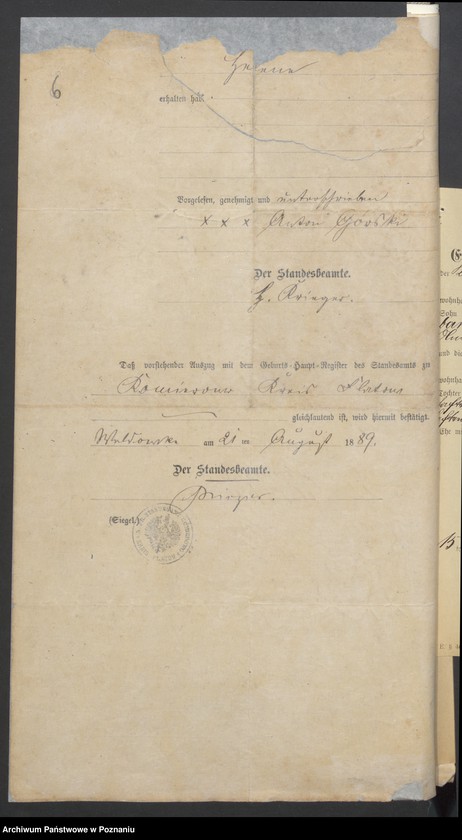 6
Helene
erhalten hat.
Vorgelesen, genehmigt und unterschrieben
× × × Anton Gorski
Der Standesbeamte.
H. Krieger.
Daß vorstehender Auszug mit dem Geburts-Haupt-Register des Standesamts zu
Komierowo Kreis Flatow
gleichlautend ist, wird hiermit bestätigt.
Waldowke am 21 ten August 1889.
Der Standesbeamte.
Krieger.
(Siegel.)
15
Archiwum Państwowe w Poznaniu